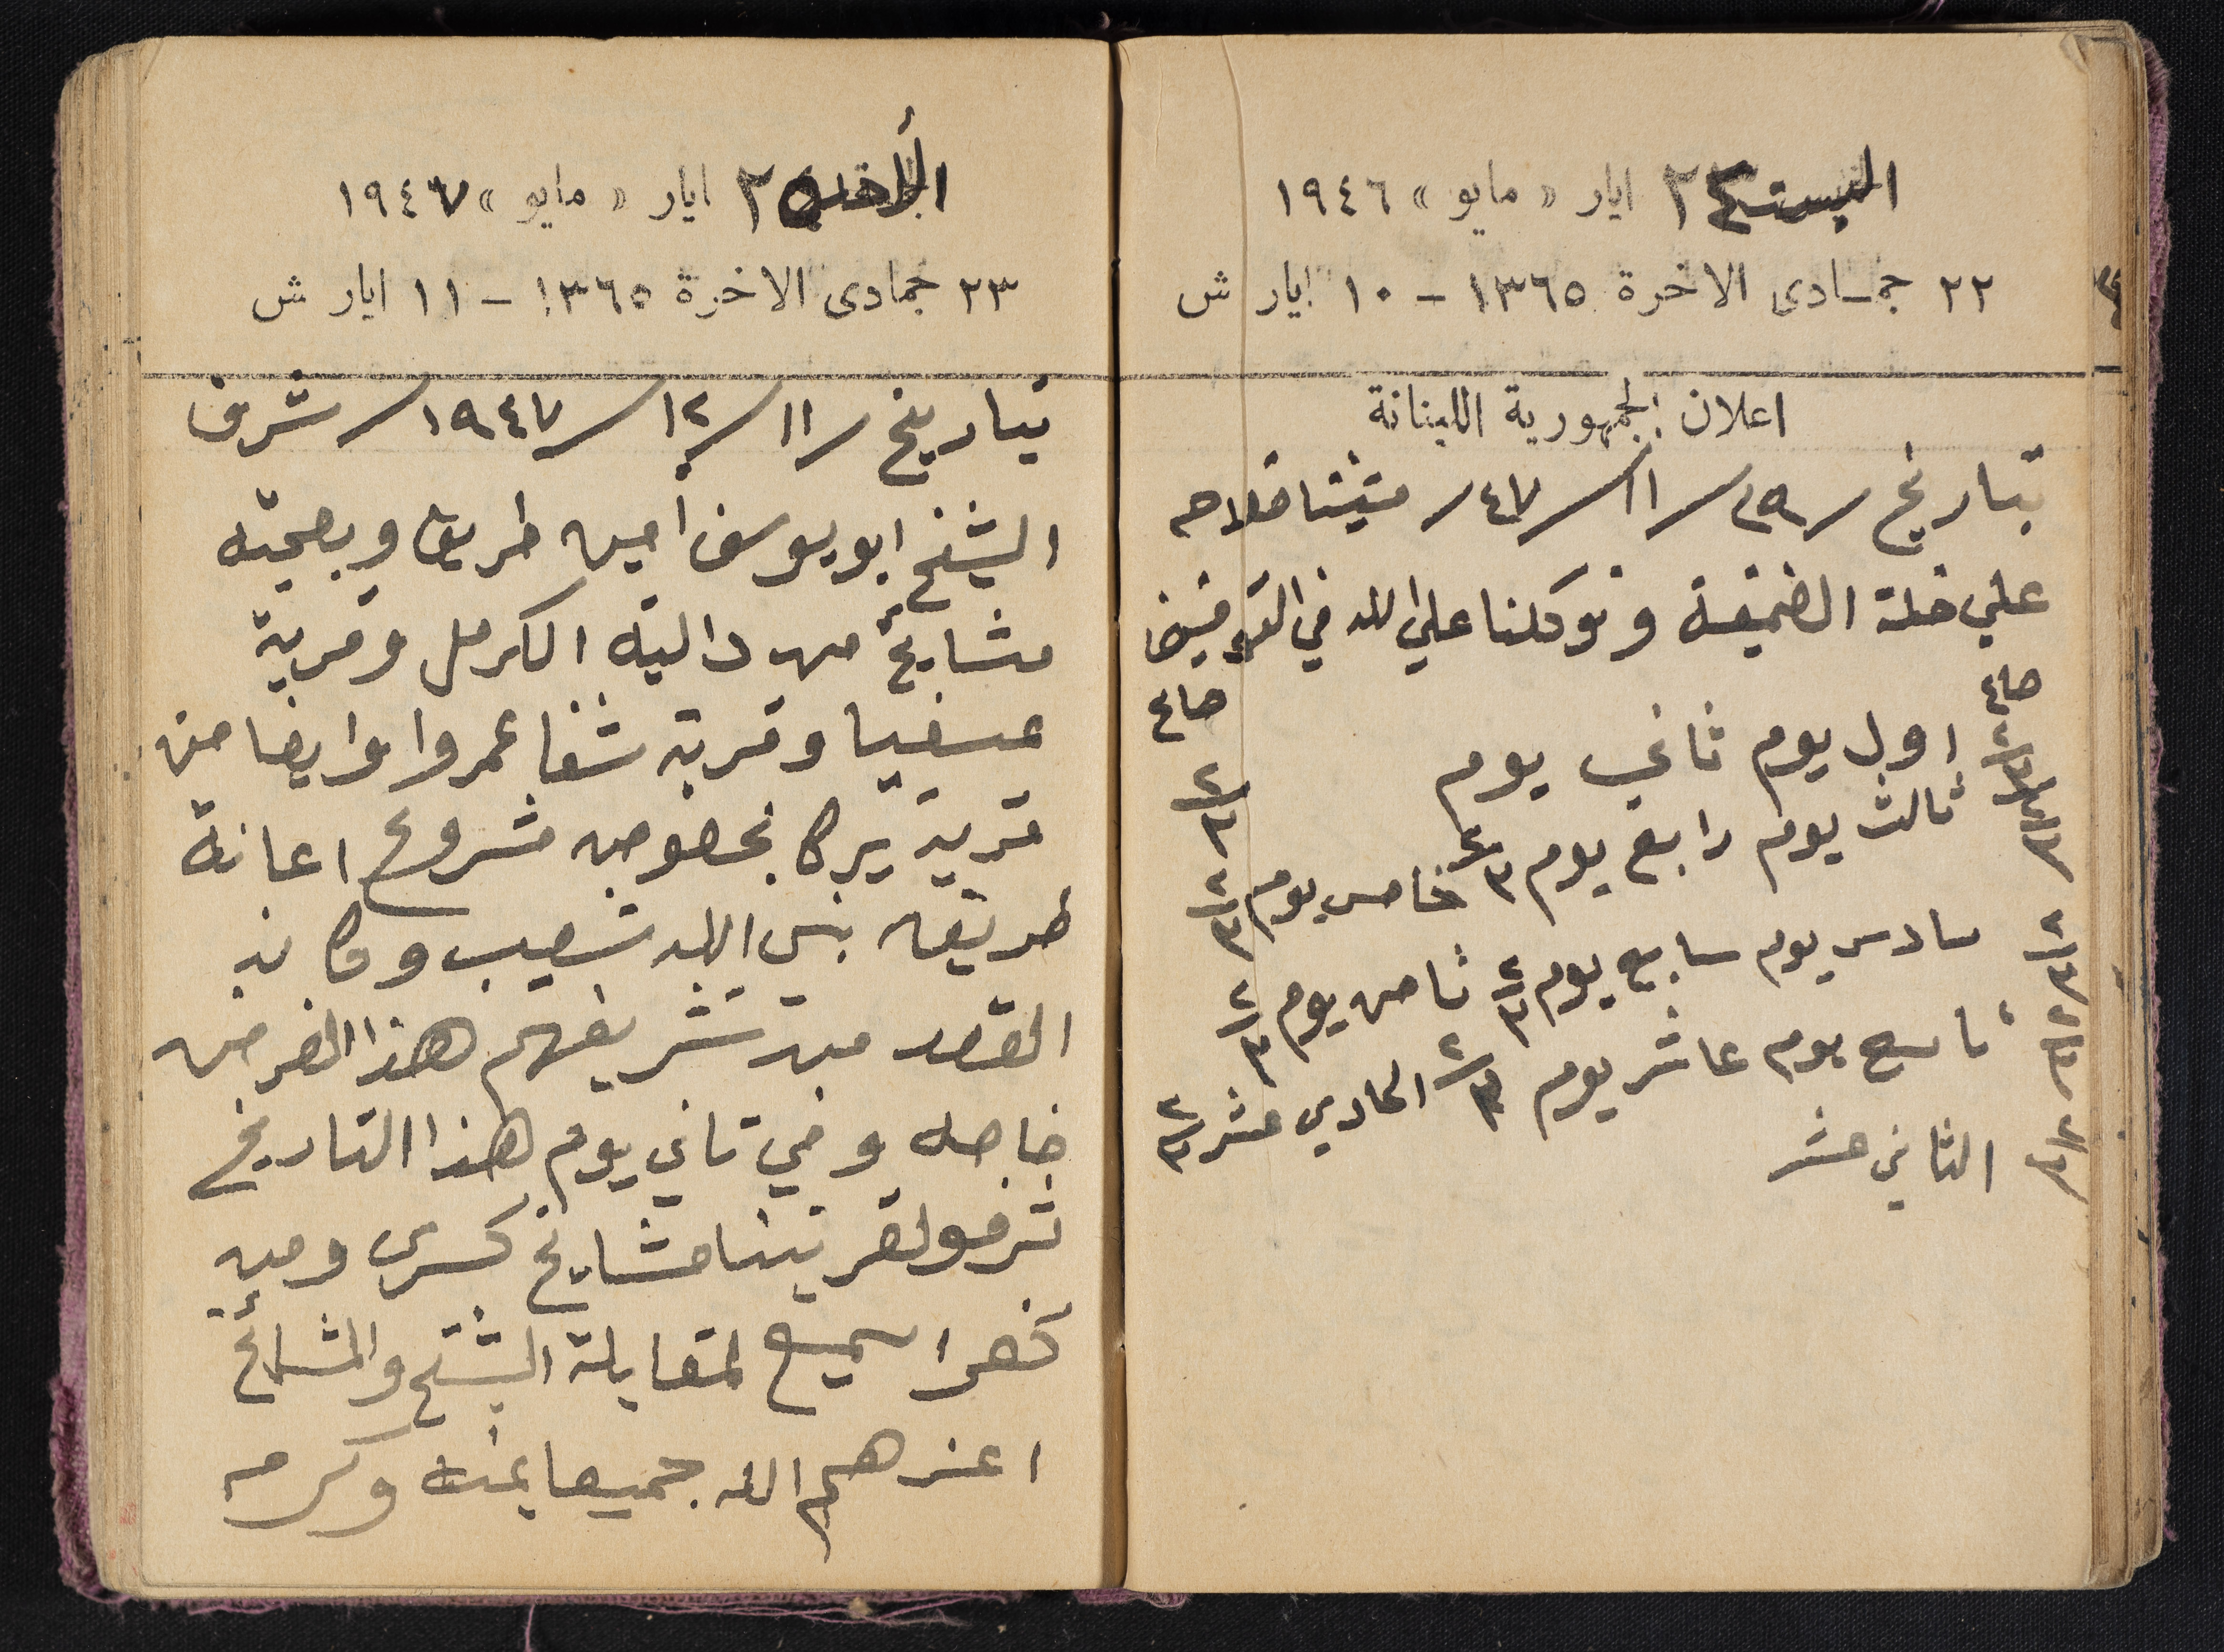 السبت ٢٤ ايار « مايو » ١٩٤٦
٢٢ جمادى الاخرة ١٣٦٥ - ١٠ ايار ش
اعلان الجمهورية اللبنانة
بتاريخ /٢٩/ ١١/ ٤٧/ متيتنا فلاحه
علي خلة الضميفه وتوكلنا علي الله في التوفيق
صاع
صاع
اول يوم ثاني يوم
ثالث يوم رابع يوم ٢/٣ خامس يوم ٢/٣
سادس يوم سابع يوم ٢/٣ ثامن يوم ٢/٣
تاسع يوم عاشر يوم ٢/٣ الحادي عشر ٢/٣
الثاني عشر
الأحد ٢٥ ايار « مايو » ١٩٤٧
٢٣ جمادى الاخرة ١٣٦٥ - ١١ ايار ش
بتاريخ /١١/ ١٢/ ١٩٤٧/ شرف
الشيخ ابو يوسف امين طريف وبصحبته
مشايخ من دالية الكرمل وقرية
عسفيا وقرية شفا عمروا وايضا من
قرية يركا بخصوص مشروع اعانة
طريقه نبي الله شعيب وكاند
القصد من تشريفهم هذا الغرض
خاصه وفي تاني يوم هذا التاريخ
شرفو لقريتنا مشايخ كسرى ومن
كفرا سميع لمقابلة الشيخ والمشائخ
اعزهم الله جميعا بمنه وكرمه